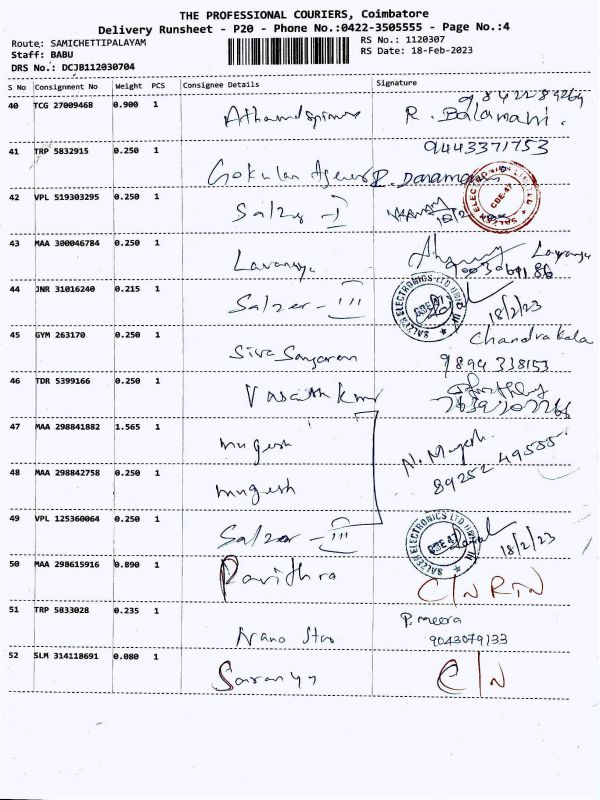 THE PROFESSIONAL COURIERS, Coimbatore
Delivery Runsheet - P20 - Phone No.:0422-3505555 - Page No.:4
Route: SAMICHETTIPALAYAM
RS No.: 1120307
Staff: BABU
RS Date: 18-Feb-2023
DRS No.: DCJB112030704
S No Consignment No Weight PCS Consignee Details Signature
40 TCG 27009468 0.900 1 R. Balamani.
9443371753
41 TRP 5832915 0.250 1 Gokulan
42 VPL 519303295 0.250 1 Salzer - I
SALZER ELECTRONICS LIMITED CBE-47
43 MAA 300046784 0.250 1 Lavanya Lavanya
44 JNR 31016240 0.215 1 Salzer - III 18/2/23
SALZER ELECTRONICS LTD UNIT III CBE 47
45 GYM 263170 0.250 1 Siva Sangaran Chandrakala
9894 338153
46 TDR 5399166 0.250 1
47 MAA 298841882 1.565 1 mugesh N. Mugesh.
89252 49555
48 MAA 298842758 0.250 1 mugesh
49 VPL 125360064 0.250 1 Salzer - III 18/2/23
SALZER ELECTRONICS LTD UNIT III CBE 47
50 MAA 298615916 0.890 1 Pavithra C/N RTN
51 TRP 5833028 0.235 1 Nano Star P. meera
9043079133
52 SLM 314118691 0.080 1 Saranya C/N